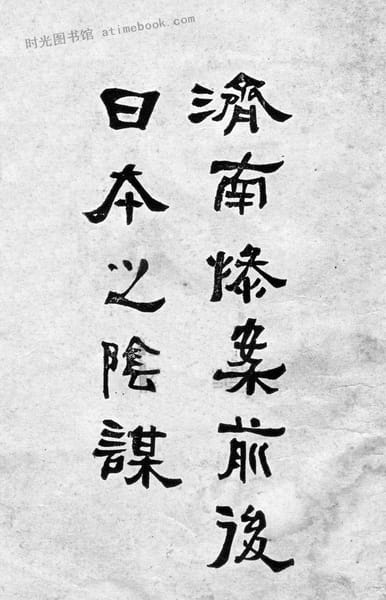 时光图书馆 atimebook.com
濟南慘案前後
日本之陰謀